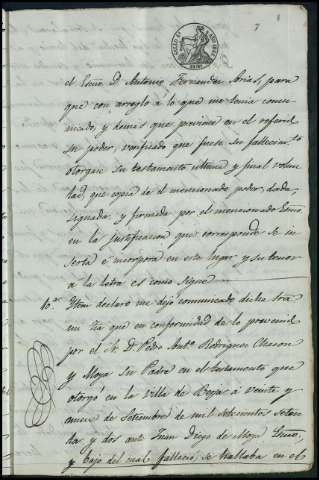 7
el Essno D. Antonio Fernandez Arias, para
que con arreglo à lo que me tenia comu-
nicado, y demas que previene en el referido
su poder, verificado que fuese su fallecim.to
otorgue su testamento ultima y final volun-
tad, que copia de el mencionado poder, dada,
signada, y firmada por el mencionado Essno
en la justificacion que corresponde se in-
serta è incorpora en este lugar y su tenor
a la letra es como sigue
10.a Itèn declaro me dejò comunicado dicha Sra
mi tia que en conformidad de lo prevenido
por el Sr. D. Pedro Anto. Rodriguez Chacon
y Moya su Padre en el testamento que
otorgò en la Villa de Berja à veinte y
nueve de Setiembre de mil setecientos seten-
ta y dos ante Juan Diego de Moya Essno,
y bajo del cual falleciò; se hallaba en el